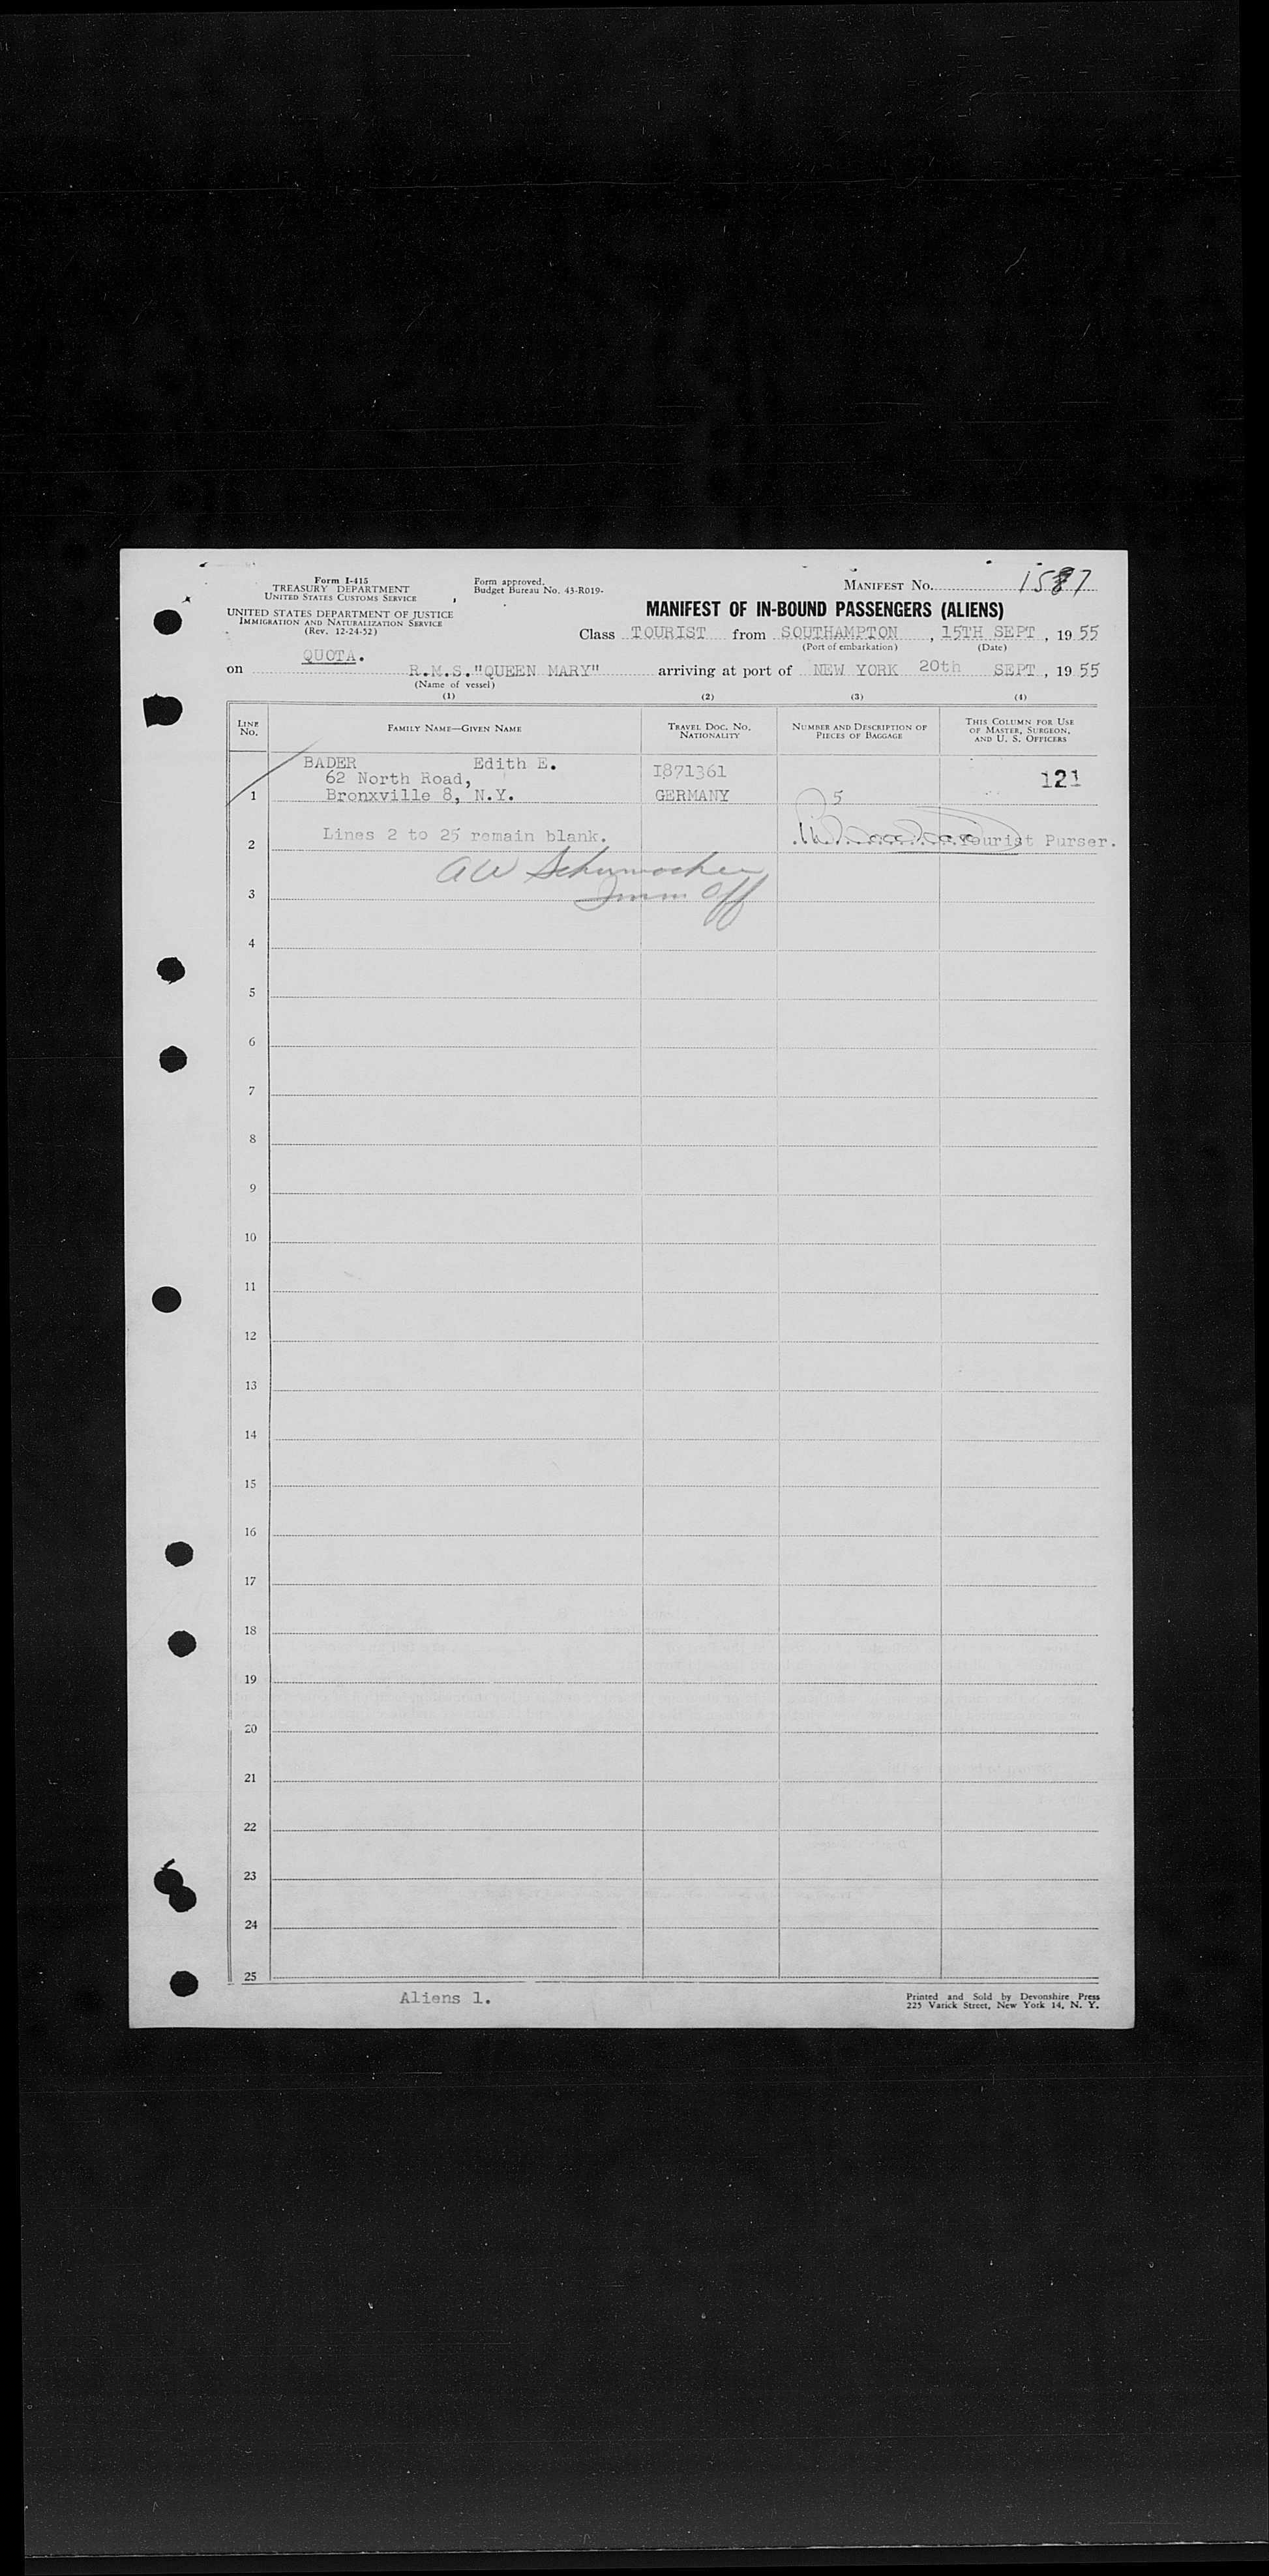 Form I-415
TREASURY DEPARTMENT
UNITED STATES CUSTOMS SERVICE
UNITED STATES DEPARTMENT OF JUSTICE
IMMIGRATION AND NATURALIZATION SERVICE
(Rev. 12-24-52)
Form approved.
Budget Bureau No. 43-R019-
MANIFEST No.
MANIFEST OF IN-BOUND PASSENGERS (ALIENS)
Class TOURIST from SOUTHAMPTON , 15TH SEPT , 19 55
(Port of embarkation) (Date)
QUOTA.
on R.M.S."QUEEN MARY" arriving at port of NEW YORK 20th SEPT , 19 55
(Name of vessel)
(1) (2) (3) (4)
LINE No. FAMILY NAME—GIVEN NAME TRAVEL DOC. NO. NATIONALITY NUMBER AND DESCRIPTION OF PIECES OF BAGGAGE THIS COLUMN FOR USE OF MASTER, SURGEON, AND U. S. OFFICERS
BADER Edith E. I871361 121
62 North Road,
1 Bronxville 8, N.Y. GERMANY 5
2 Lines 2 to 25 remain blank. Tourist Purser.
AW Schumacher
3 Imm Off
4
5
6
7
8
9
10
11
12
13
14
15
16
17
18
19
20
21
22
23
24
25
Aliens 1.
Printed and Sold by Devonshire Press
225 Varick Street, New York 14, N. Y.